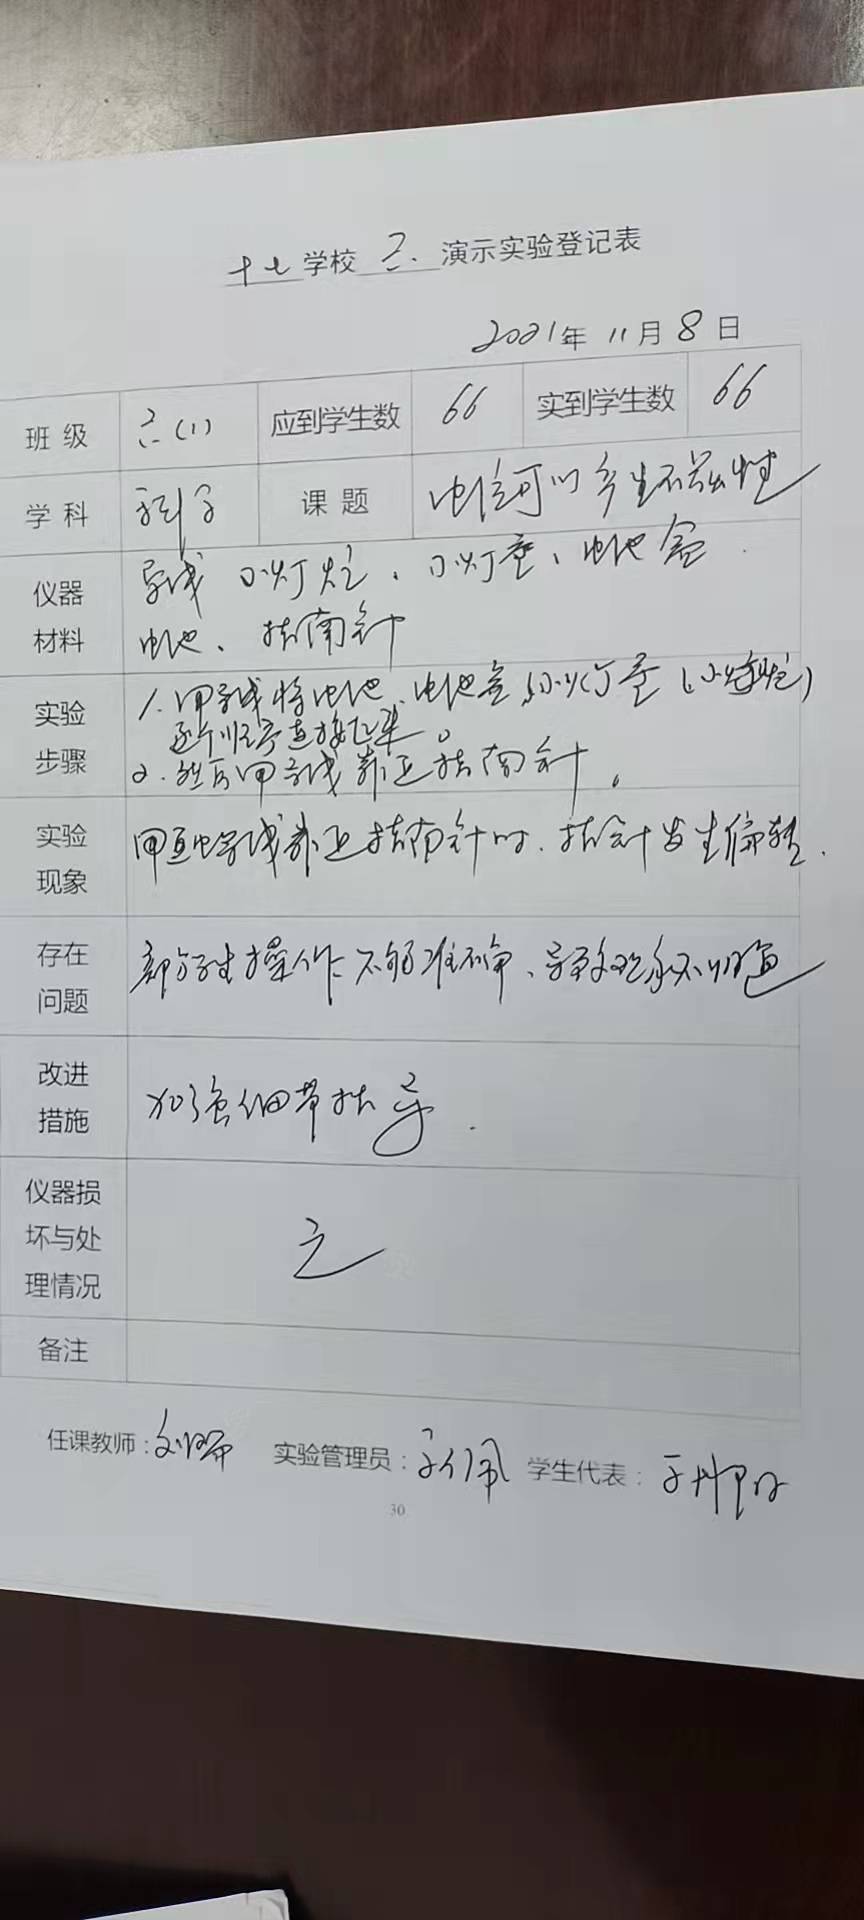 十七学校 六 演示实验登记表
2021年 11月 8日
班级 六(1) 应到学生数 66 实到学生数 66
学科 科学 课题 电能可以产生磁性
仪器材料 导线 小灯炮、小灯座、电池盒.
电池、指南针
实验步骤 1.用导线将电池、电池盒、小灯座(小灯炮)
逐个顺序连接起来。
2.然后用导线靠近指南针。
实验现象 用通电导线靠近指南针时.指针发生偏转.
存在问题 部分学生操作不够准确、导致现象不明显
改进措施 加强细节指导.
仪器损坏与处理情况 无
备注
任课教师: 实验管理员: 学生代表:
30